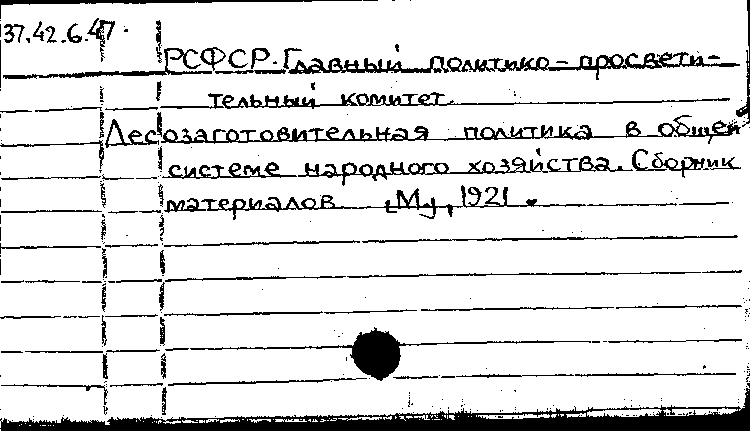 37.42.6.47.
РСФСР. Главный политико-просвети-
тельный комитет.
Лесозаготовительная политика в общей
системе народного хозяйства. Сборник
материалов. [М], 1921.